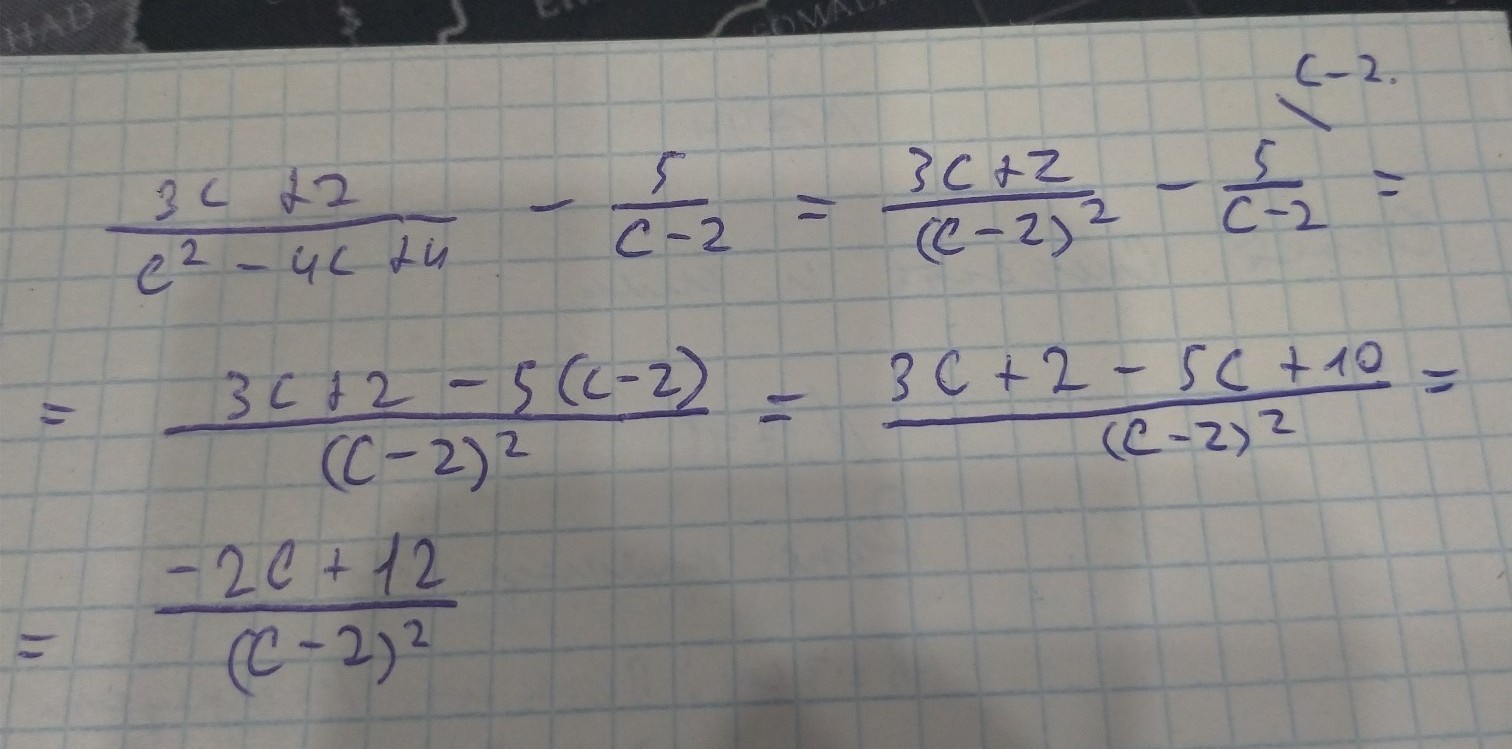 HAD
SOMALI
c-2.
3c+2/(c²-4c+4) - 5/(c-2) = 3c+2/(c-2)² - 5/(c-2) =
= 3c+2-5(c-2)/(c-2)² = 3c+2-5c+10/(c-2)² =
= -2c+12/(c-2)²